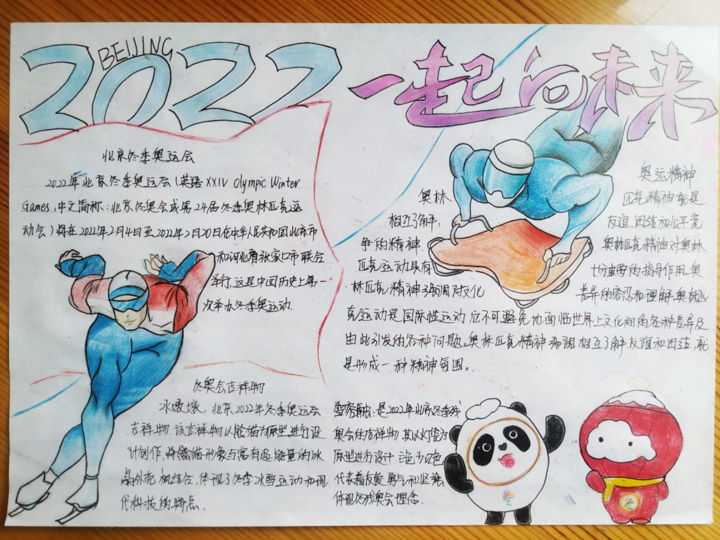 BEIJING
2022
一起向未来
北京冬季奥运会
2022年北京冬季奥运会(英语XXIV Olympic Winter
Games,中文简称:北京冬奥会或第24届冬季奥林匹克运
动会)将在2022年2月4日至2022年2月20日在中华人民共和国北京市
和河北省张家口市联合
举行.这是中国历史上第一
次举办冬季奥运动
奥运精神
奥林 匹克精神就是
相互了解, 友谊、团结和公平竞
争的精神 奥林匹克精神对奥林
匹克运动具有 十分重要的指导作用.奥
林匹克精神强调对文化 差异的容忍和理解.奥林匹
克运动是国际性运动,它不可避免地面临世界上文化间的各种差异及
由此引发的各种问题.奥林匹克精神强调相互了解友谊和团结,就
是形成一种精神氛围.
冬奥会吉祥物
冰墩墩,北京2022年冬季奥运会
吉祥物.该吉祥物以熊猫为原型进行设
计制作,将熊猫形象与富有超能量的冰
晶外壳相结合,体现了冬季冰雪运动和现
代科技特点.
雪容融:是2022年北京冬季残
奥会的吉祥物,其以灯笼为
原型进行设计
代表着友爱、勇气和坚强,
体现冬残奥会理念.